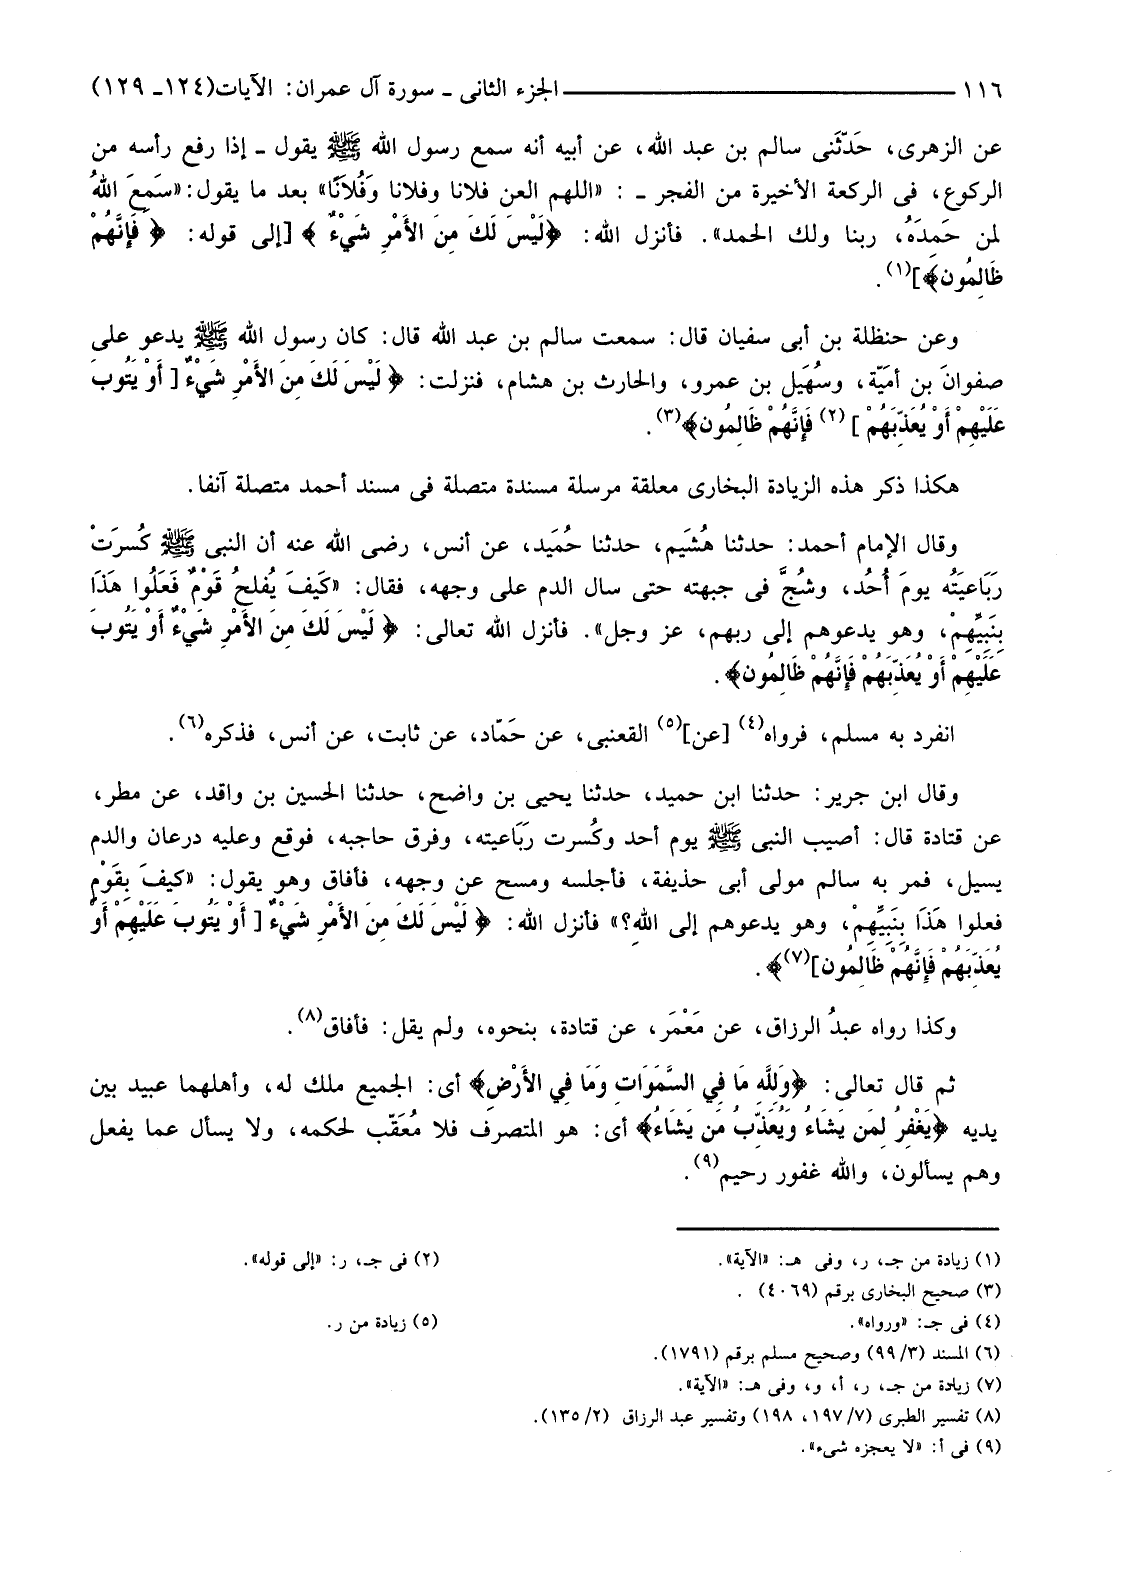 ١١٦ ــــــــــــــــ الجزء الثانى ـ سورة آل عمران: الآيات(١٢٤ـ ١٢٩)
عن الزهرى، حَدّثَنى سالم بن عبد الله، عن أبيه أنه سمع رسول الله ﷺ يقول ـ إذا رفع رأسه من
الركوع، فى الركعة الأخيرة من الفجر ـ : «اللهم العن فلانا وفلانا وَفُلاَنًا» بعد ما يقول: «سَمِعَ اللهُ
لمن حَمِدَهُ، ربنا ولك الحمد». فأنزل الله: ﴿لَيْسَ لَكَ مِنَ الأَمْرِ شَيْءٌ ﴾ [إلى قوله: ﴿ فَإِنَّهُمْ
ظَالِمُون﴾](١).
وعن حنظلة بن أبى سفيان قال: سمعت سالم بن عبد الله قال: كان رسول الله ﷺ يدعو على
صفوانَ بن أمَيّة، وسُهَيل بن عمرو، والحارث بن هشام، فنزلت: ﴿ لَيْسَ لَكَ مِنَ الأَمْرِ شَيْءٌ [ أَوْ يَتُوبَ
عَلَيْهِمْ أَوْ يُعَذِّبَهُمْ ] (٢) فَإِنَّهُمْ ظَالِمُون﴾(٣).
هكذا ذكر هذه الزيادة البخارى معلقة مرسلة مسندة متصلة فى مسند أحمد متصلة آنفا.
وقال الإمام أحمد: حدثنا هُشَيم، حدثنا حُمَيد، عن أنس، رضى الله عنه أن النبى ﷺ كُسرَتْ
رَبَاعيَتُه يومَ أُحُد، وشُجَّ فى جبهته حتى سال الدم على وجهه، فقال: «كَيفَ يُفلحُ قَوْمٌ فَعَلُوا هَذَا
بِنَبِيِّهِمْ، وهو يدعوهم إلى ربهم، عز وجل». فأنزل الله تعالى: ﴿ لَيْسَ لَكَ مِنَ الأَمْرِ شَيْءٌ أَوْ يَتُوبَ
عَلَيْهِمْ أَوْ يُعَذِّبَهُمْ فَإِنَّهُمْ ظَالِمُون﴾.
انفرد به مسلم، فرواه(٤) [عن](٥) القعنبى، عن حَمّاد، عن ثابت، عن أنس، فذكره(٦).
وقال ابن جرير: حدثنا ابن حميد، حدثنا يحيى بن واضح، حدثنا الحسين بن واقد، عن مطر،
عن قتادة قال: أصيب النبى ﷺ يوم أحد وكُسرت رَبَاعيته، وفرق حاجبه، فوقع وعليه درعان والدم
يسيل، فمر به سالم مولى أبى حذيفة، فأجلسه ومسح عن وجهه، فأفاق وهو يقول: «كيفَ بِقَوْمٍ
فعلوا هَذَا بِنَبِيِّهِمْ، وهو يدعوهم إلى اللهِ؟» فأنزل الله: ﴿ لَيْسَ لَكَ مِنَ الأَمْرِ شَيْءٌ [ أَوْ يَتُوبَ عَلَيْهِمْ أَوْ
يُعَذِّبَهُمْ فَإِنَّهُمْ ظَالِمُون](٧)﴾.
وكذا رواه عبدُ الرزاق، عن مَعْمَر، عن قتادة، بنحوه، ولم يقل: فأفاق(٨).
ثم قال تعالى: ﴿وَلِلَّهِ مَا فِي السَّمَوَاتِ وَمَا فِي الأَرْضِ﴾ أى: الجميع ملك له، وأهلهما عبيد بين
يديه ﴿يَغْفِرُ لِمَن يَشَاءُ وَيُعَذِّبُ مَن يَشَاءُ﴾ أى: هو المتصرف فلا مُعَقّب لحكمه، ولا يسأل عما يفعل
وهم يسألون، والله غفور رحيم(٩).
(١) زيادة من جـ، ر، وفى هـ: «الآية». (٢) فى جـ، ر: «إلى قوله».
(٣) صحيح البخارى برقم (٤٠٦٩) .
(٤) فى جـ: «ورواه». (٥) زيادة من ر.
(٦) المسند (٣/ ٩٩) وصحيح مسلم برقم (١٧٩١).
(٧) زيادة من جـ، ر، أ، و، وفى هـ: «الآية».
(٨) تفسير الطبرى (٧/ ١٩٧، ١٩٨) وتفسير عبد الرزاق (٢/ ١٣٥).
(٩) فى أ: «لا يعجزه شىء».